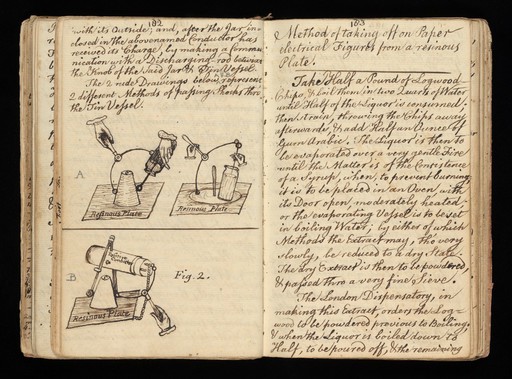 182
with its Outside; and, after the Jar in-
closed in the abovenamed Conductor has
received its Charge, by making a Commu-
nication with a Discharging-rod between
the Knob of the said Jar & Tin Vessel.
The 2 rude Drawings below, represent
2 different Methods of passing Shocks thro
the Tin Vessel.
A
Resinous Plate
Resinous Plate
B
Fig. 2.
Resinous Plate
183
Method of taking off on Paper
electrical Figures from a resinous
Plate.
Take Half a Pound of Logwood
Chips, & boil them in two Quarts of Water
until Half of the Liquor is consumed;
then strain, throwing the Chips away
afterwards, & add Half an Ounce of
Gum Arabic. The Liquor is then to
be evaporated over a very gentle Fire
until the Matter is of the Consistence
of a Syrup, when, to prevent burning
it is to be placed in an Oven, with
its Door open, moderately heated
or the evaporating Vessel is to be set
in boiling Water; by either of which
Methods the Extract may, tho very
slowly, be reduced to a dry State.
The dry Extract is then to be powdered,
& passed thro a very fine Sieve.
The London Dispensatory, in
making this Extract, orders the Log-
wood to be powdered previous to Boiling,
& when the Liquor is boiled down to
Half, to be poured off, & the remaining